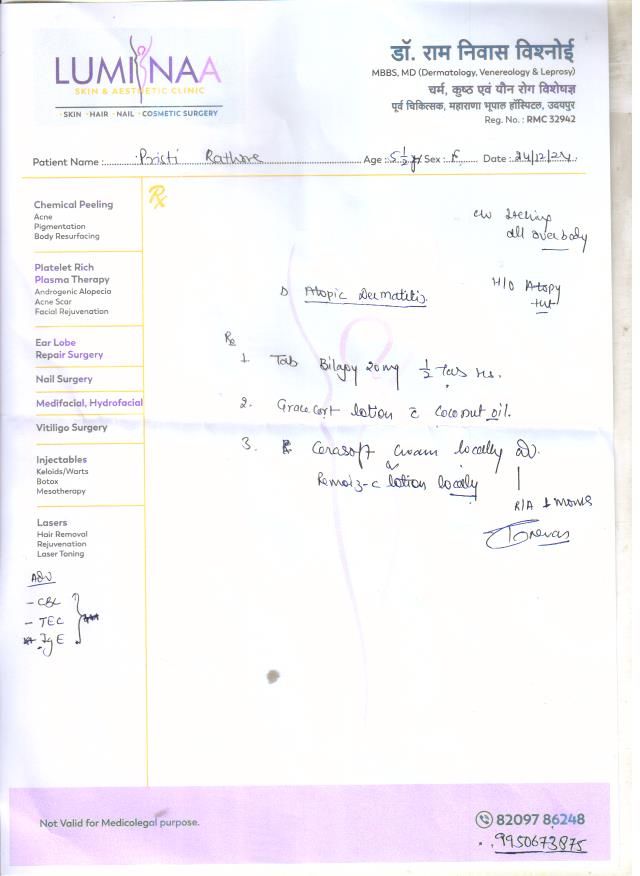 LUMINAA
SKIN & AESTHETIC CLINIC
· SKIN · HAIR · NAIL · COSMETIC SURGERY
डॉ. राम निवास विश्नोई
MBBS, MD (Dermatology, Venereology & Leprosy)
चर्म, कुष्ठ एवं यौन रोग विशेषज्ञ
पूर्व चिकित्सक, महाराणा भूपाल हॉस्पिटल, उदयपुर
Reg. No. : RMC 32942
Patient Name : Pristi Rathore Age : 5 1/2 yr Sex : F Date : 24/12/24
Rx
c/o Itching
all over body
H/O Atopy
D Atopic Dermatitis.
Rx
1. Tab Bilagy 20mg 1/2 Tab HS.
2. Gracecort lotion c̄ coconut oil.
3. Cerasoft cream locally
Remoiz-c lotion locally
R/A 1 month
Chemical Peeling
Acne
Pigmentation
Body Resurfacing
Platelet Rich
Plasma Therapy
Androgenic Alopecia
Acne Scar
Facial Rejuvenation
Ear Lobe
Repair Surgery
Nail Surgery
Medifacial, Hydrofacial
Vitiligo Surgery
Injectables
Keloids/Warts
Botox
Mesotherapy
Lasers
Hair Removal
Rejuvenation
Laser Toning
Adv
- CBC
- TEC
IgE
Not Valid for Medicolegal purpose.
82097 86248
9950673875